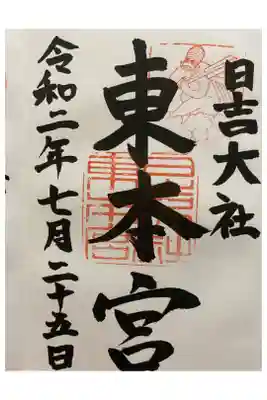 日吉大社
東本宮
令和二年七月二十五日